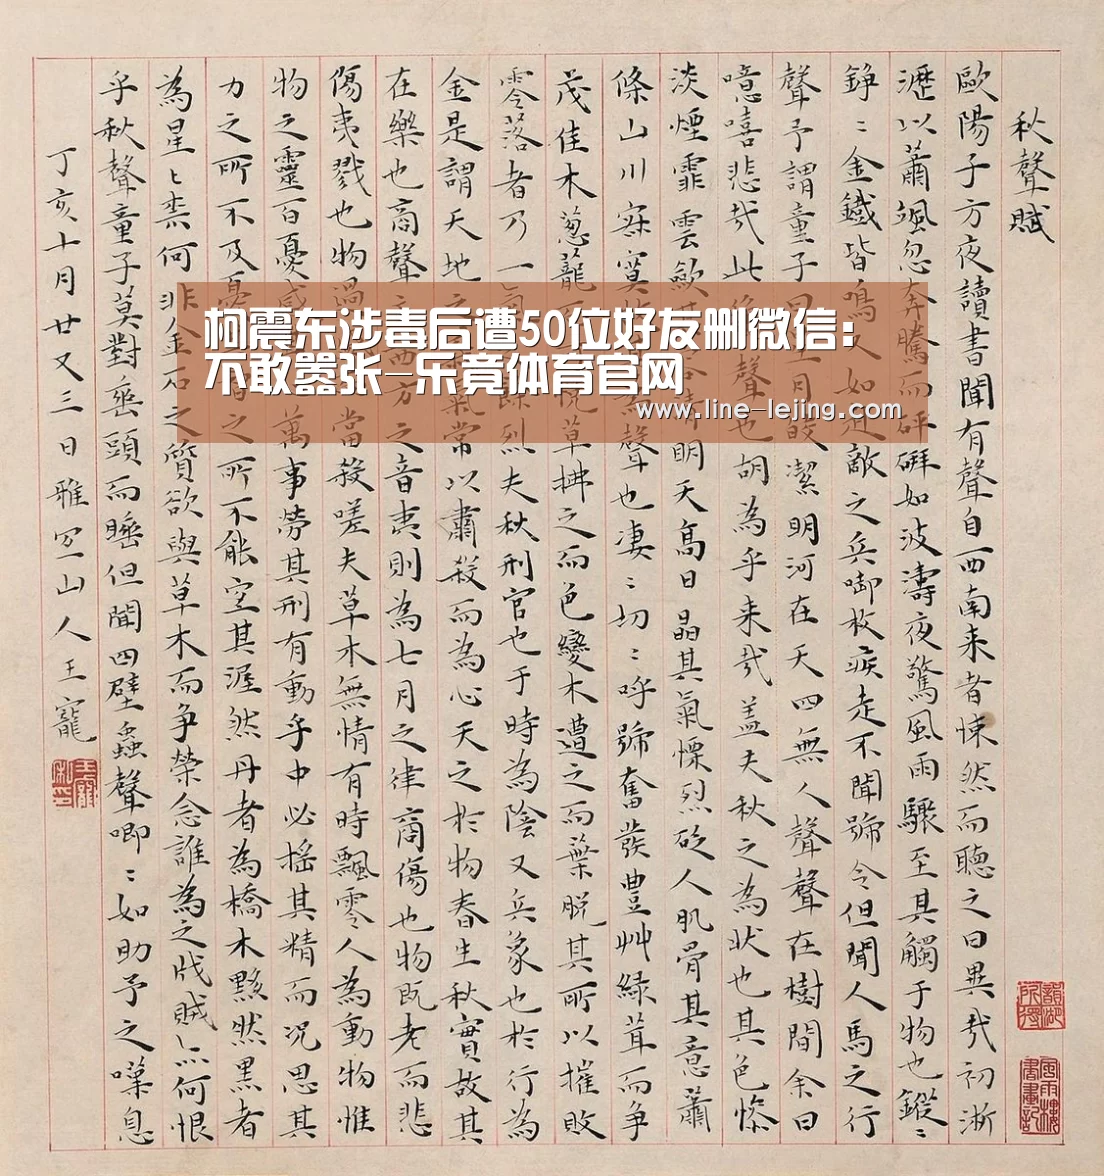 柯震东涉毒后遭50位好友删微信：
不敢嚣张-乐竞体育官网
www.line-lejing.com
秋聲賦
歐陽子方夜讀書聞有聲自西南来者悚然而聽之曰異哉初淅
瀝以蕭颯忽奔騰而砰硑如波濤夜驚風雨驟至其觸于物也鏦〻
錚〻金鐵皆鳴又如赴敵之兵啣枚疾走不聞號令但聞人馬之行
聲予謂童子曰月皎潔明河在天四無人聲聲在樹間余曰
噫嘻悲哉此聲也胡為乎来哉盖夫秋之為狀也其色惨
淡煙霏雲歛其明天高日晶其氣慄烈砭人肌骨其意蕭
條山川寂寞為聲也凄〻切〻呼號奮蕟豊艸綠茸而争
茂佳木葱蘢悦草拂之而色變木遭之而葉脱其所以摧敗
零落者乃一氣餘烈夫秋刑官也于時為陰又兵象也於行為
金是謂天地之氣常以肅殺而為心天之於物春生秋實故其
在樂也商聲西方之音夷則為七月之律商傷也物既老而悲
傷夷戮也物過當殺嗟夫草木無情有時飄零人為動物惟
物之靈百憂感萬事勞其刑有動乎中必揺其精而况思其
力之所不及憂智之所不能宜其渥然丹者為槁木黟然黒者
為星〻奈何非金石之質欲與草木而争榮念誰為之戕賊亦何恨
乎秋聲童子莫對垂頭而睡但聞四壁蟲聲唧〻如助予之嘆息
丁亥十月廿又三日雅宜山人王寵